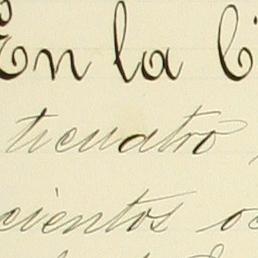 En la C
ticuatro
cientos oc